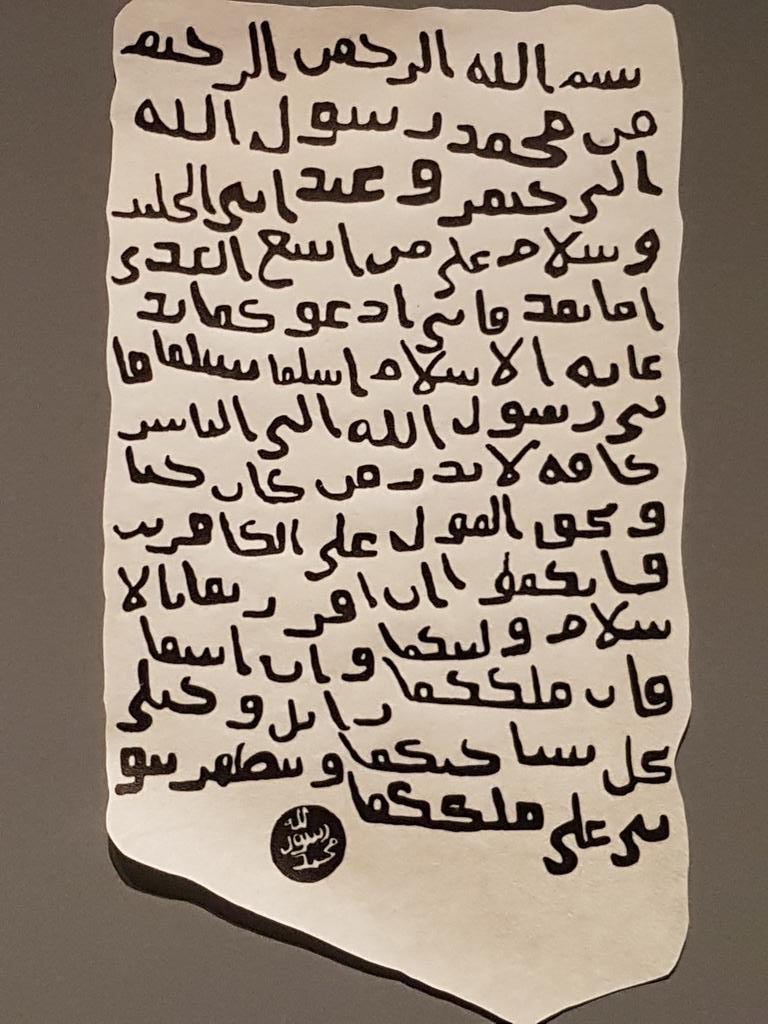 بسم الله الرحمن الرحيم
من محمد رسول الله
الى جيفر وعبد ابنى الجلند
وسلام على من اتبع الهدى
اما بعد فانى ادعوكما بد
عاية الاسلام اسلما تسلما فا
نى رسول الله الى الناس
كافة لانذر من كان حيا
ويحق القول على الكافرين
فانكما ان اقررتما بالا
سلام وليتكما وان ابيتما
فان ملككما زايل وخيلى
تحل بساحتكما وتظهر نبو
تى على ملككما
الله
رسول
محمد